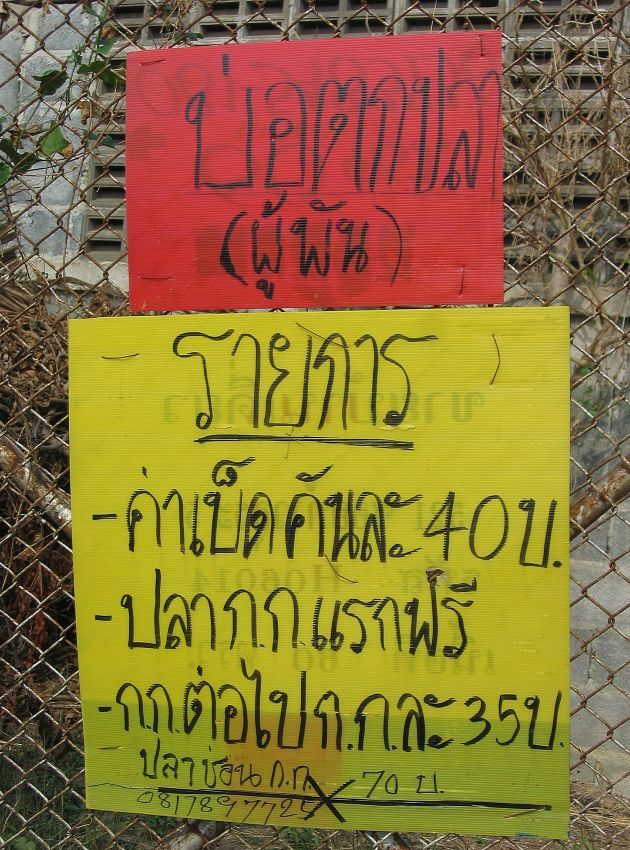 บ่อตกปลา
(ผู้พัน)
รายการ
- ค่าเบ็ดคันละ 40 บ.
- ปลา ก.ก. แรกฟรี
- ก.ก. ต่อไป ก.ก. ละ 35 บ.
ปลาช่อน ก.ก. 70 บ.